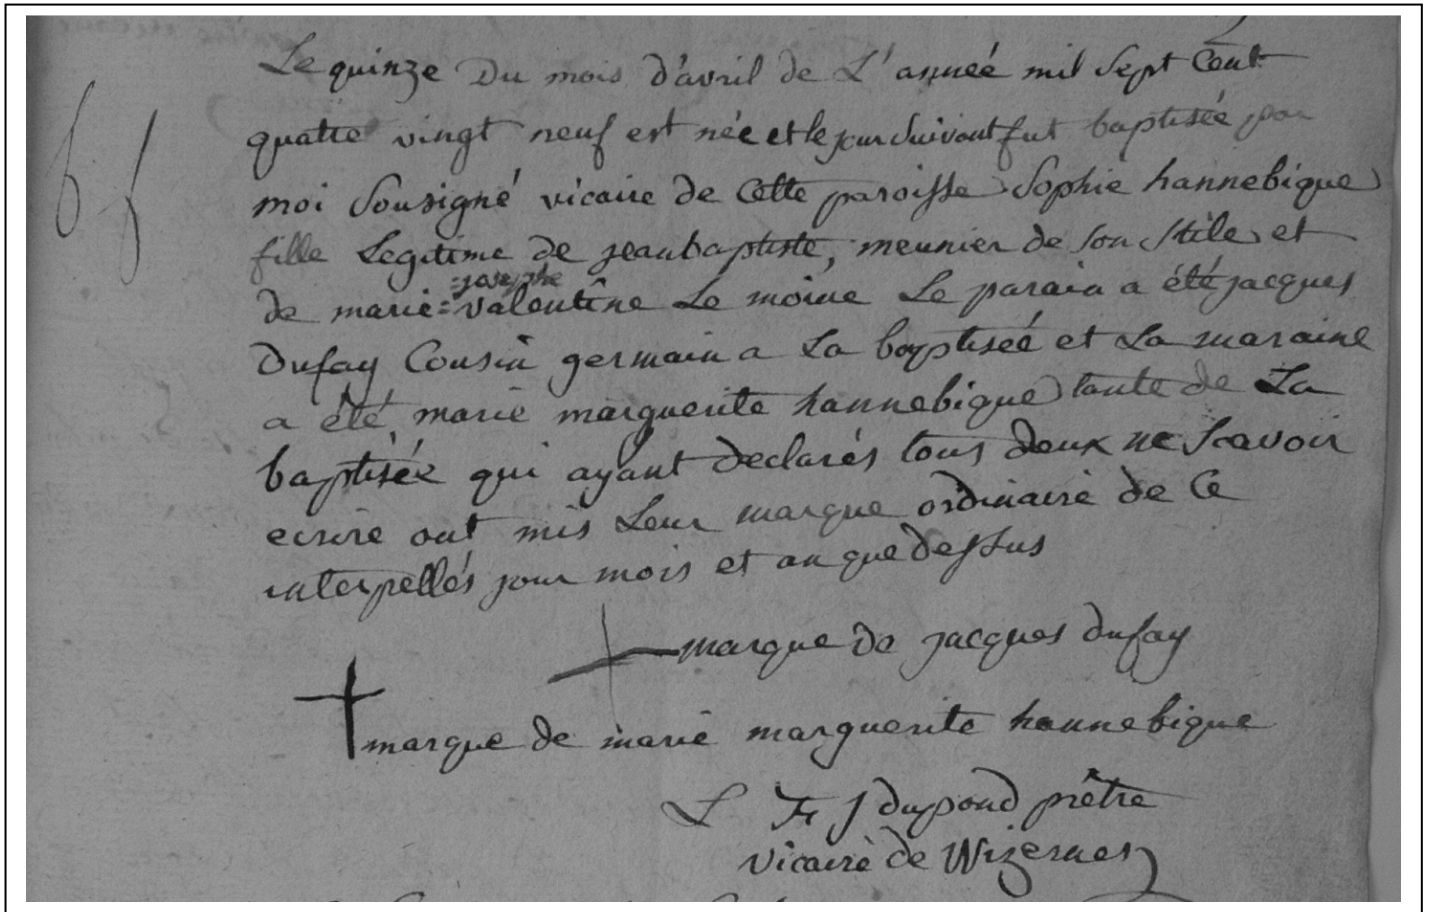 Le quinze Du mois d'avril de L'année mil Sept Cent
quatre vingt neuf est née et le jour suivant fut baptisée par
moi Sousigné vicaire de Cette paroisse Sophie hannebique
fille Legitime de jeanbaptiste, meunier de son stile et
=josephe
de marie=valentine Le moine Le parain a été jacques
Dufay Cousin germain a La baptisée et La maraine
a été marie marguerite hannebique tante de La
baptisée qui ayant declarés tous deux ne Scavoir
ecrire ont mis Leur marque ordinaire de Ce
interpellés jour mois et an que dessus
marque de jacques dufay
marque de marie marguerite hannebique
L F J dupond prêtre
vicaire de Wizernes